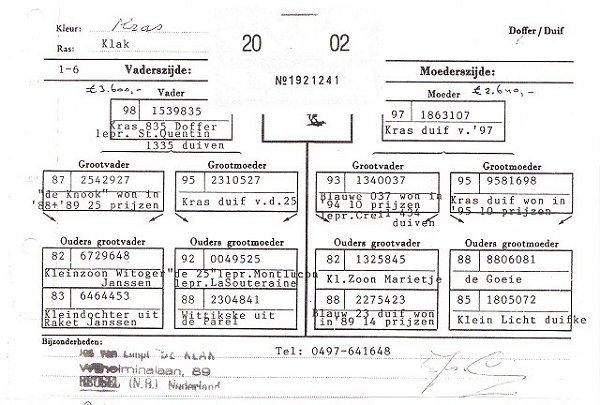 Kleur: Kras
20 02
Doffer / Duif
Ras: Klak
№1921241
1-6 Vaderszijde: Moederszijde:
£3.600,- Vader
Moeder £2.600,-
98 1539835
Kras 835 Doffer
1epr. St.Quentin
1335 duiven
97 1863107
Kras duif v.'97
Grootvader Grootmoeder Grootvader Grootmoeder
87 2542927
"de Knook" won in
'88+'89 25 prijzen
95 2310527
Kras duif v.d.25
93 1340037
Blauwe 037 won in
'94 10 prijzen
1epr.Creil 454
duiven
95 9581698
Kras duif won in
'95 10 prijzen
Ouders grootvader Ouders grootmoeder Ouders grootvader Ouders grootmoeder
82 6729648
Kleinzoon Witoger
Janssen
92 0049525
"de 25"1epr.Montlucon
1epr.LaSouteraine
82 1325845
Kl.Zoon Marietje
88 8806081
de Goeie
83 6464453
Kleindochter uit
Raket Janssen
88 2304841
Wittikske uit
de Parel
88 2275423
Blauw 23 duif won
in'89 14 prijzen
85 1805072
Klein Licht duifke
Bijzonderheden:
Tel: 0497-641648
Jos van Limpt "DE KLAK"
Wilhelminalaan, 89
REUSEL (N.B.) Nederland